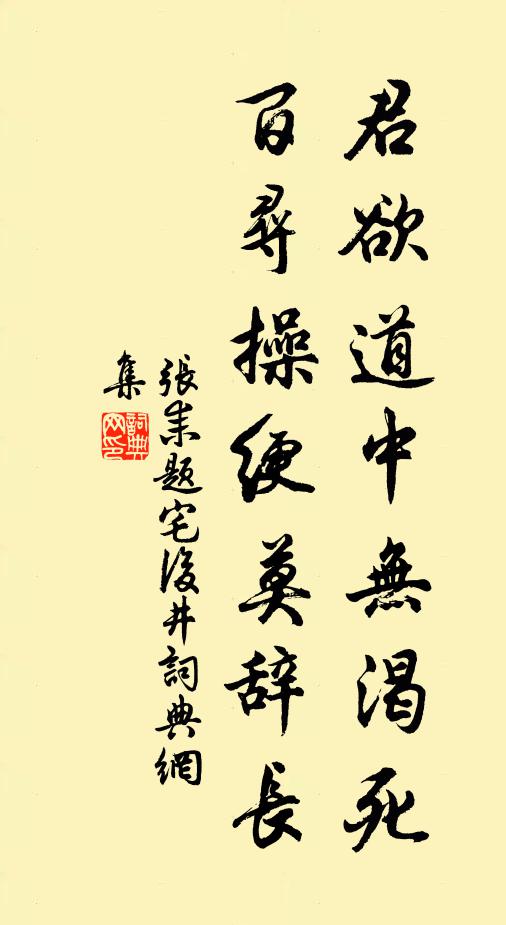 君欲道中無渴死
百尋操綆莫辞長
張耒題宅後井詞典網
集
詞典網印